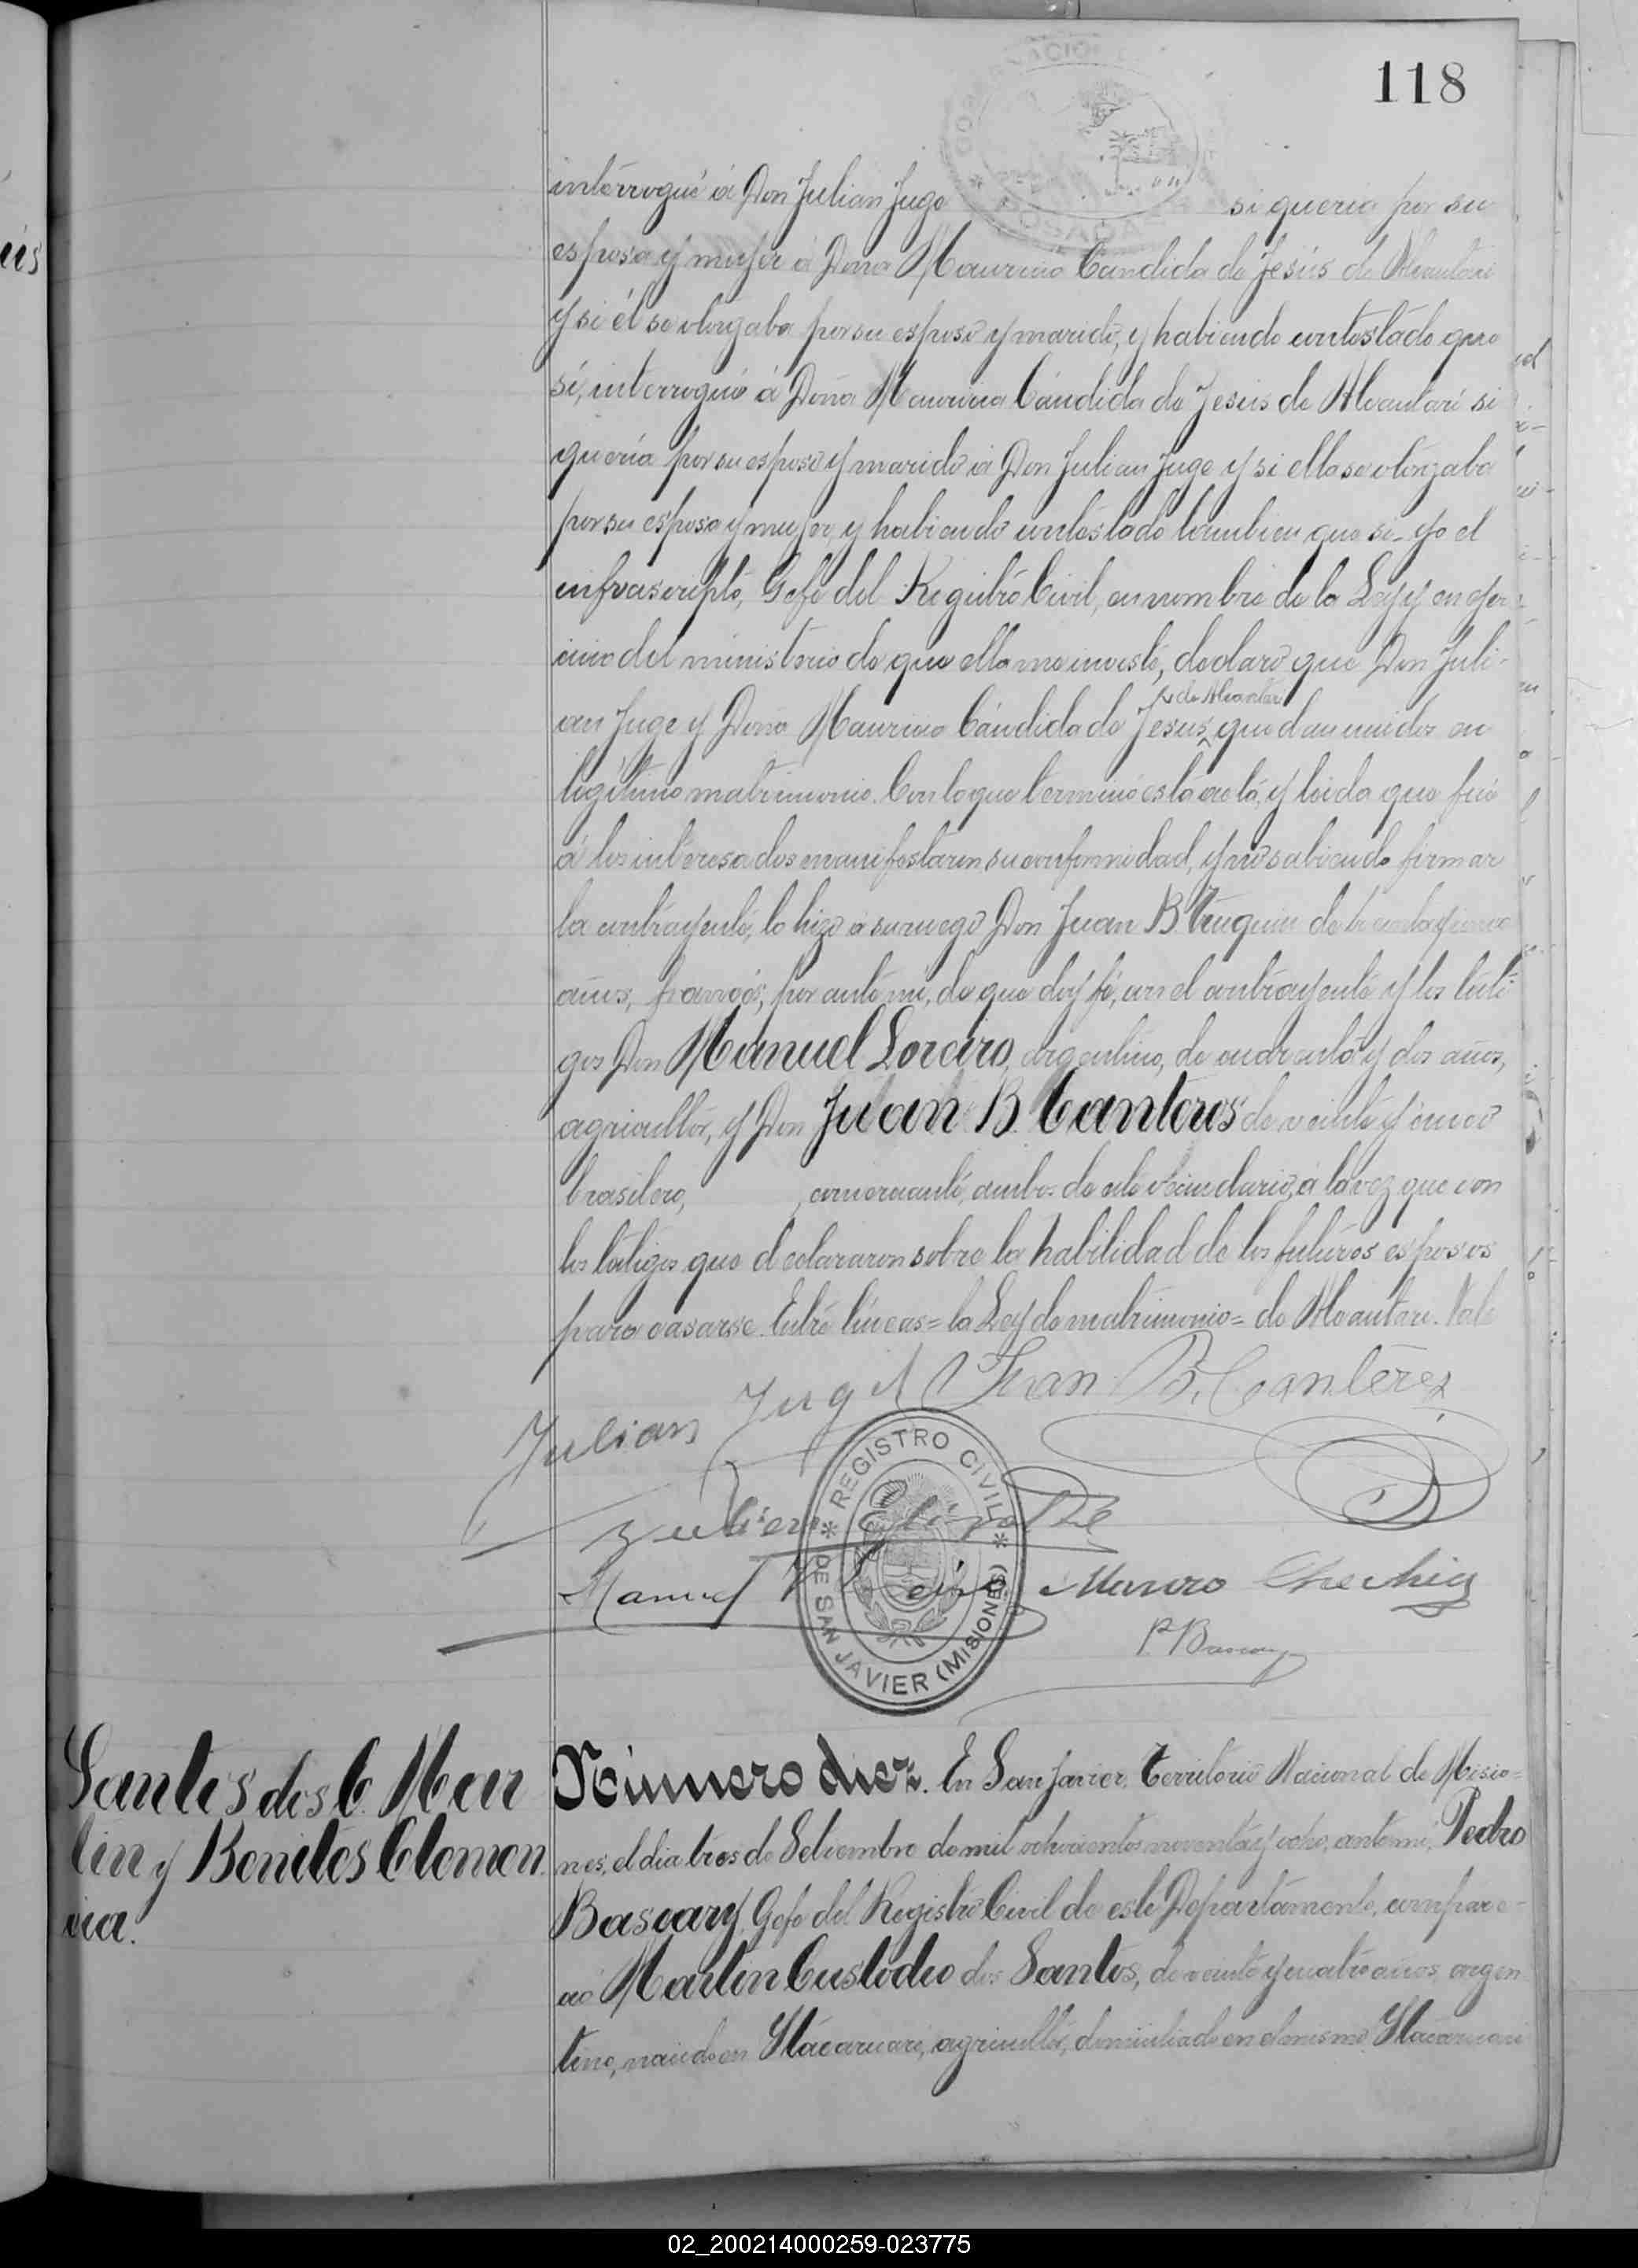 118
interrogué á Don Julian Juge si queria por su
esposa y mujer á Doña Mauricia Cándida de Jesús de Alcantari
y si él se otorgaba por su esposo y marido, y habiendo contestado que
sí, interrogué á Doña Mauricia Cándida de Jesús de Alcantari si
quería por su esposo y marido á Don Julian Juge y si ella se otorgaba
por su esposa y mujer, y habiendo contestado tambien que si_ yo el
infrascripto, Gefe del Registro Civil, en nombre de la Ley y en ejer
cicio del ministerio de que ella me inviste, declaro que Don Juli-
an Juge y Doña Mauricia Cándida de Jesus de Alcantari quedan unidos en
legítimo matrimonio. Con lo que terminó esta acta, y leida que fué
á los interesados manifestaron su conformidad, y no sabiendo firmar
la contrayente, lo hizo a su ruego Don Juan B. de treinta y cinco
años, francés, por ante mi, de que doy fé, con el contrayente y los testi-
gos Don Manuel Loreiro, argentino, de cuarenta y dos años,
agricultor, y Don Juan B. Canteros de veinte y cinco
brasilero, , comerciante, ambos de este vecindario, á la vez que con
los testigos que declararon sobre la habilidad de los futuros esposos
para casarse. Entre líneas= la Ley de matrimonio= de Alcantari. Vale
Julian Juge Juan B. Canteres
Julien
Manuel Mauro
P. Bascary
* REGISTRO CIVIL * DE SAN JAVIER (MISIONES)
Santos dos C. Mar
tin y Benites Clemen
cia.
Número diez. En San Javier, Territorio Nacional de Misio=
nes, el dia tres de Setiembre de mil ochocientos noventa y ocho, ante mi, Pedro
Bascary, Gefe del Registro Civil de este Departamento, compare-
ció Martin Custodio dos Santos, de veinte y cuatro años, argen
tino, nacido en Itacaruaré, agricultor, domiciliado en el mismo Itacaruaré
02_200214000259-023775